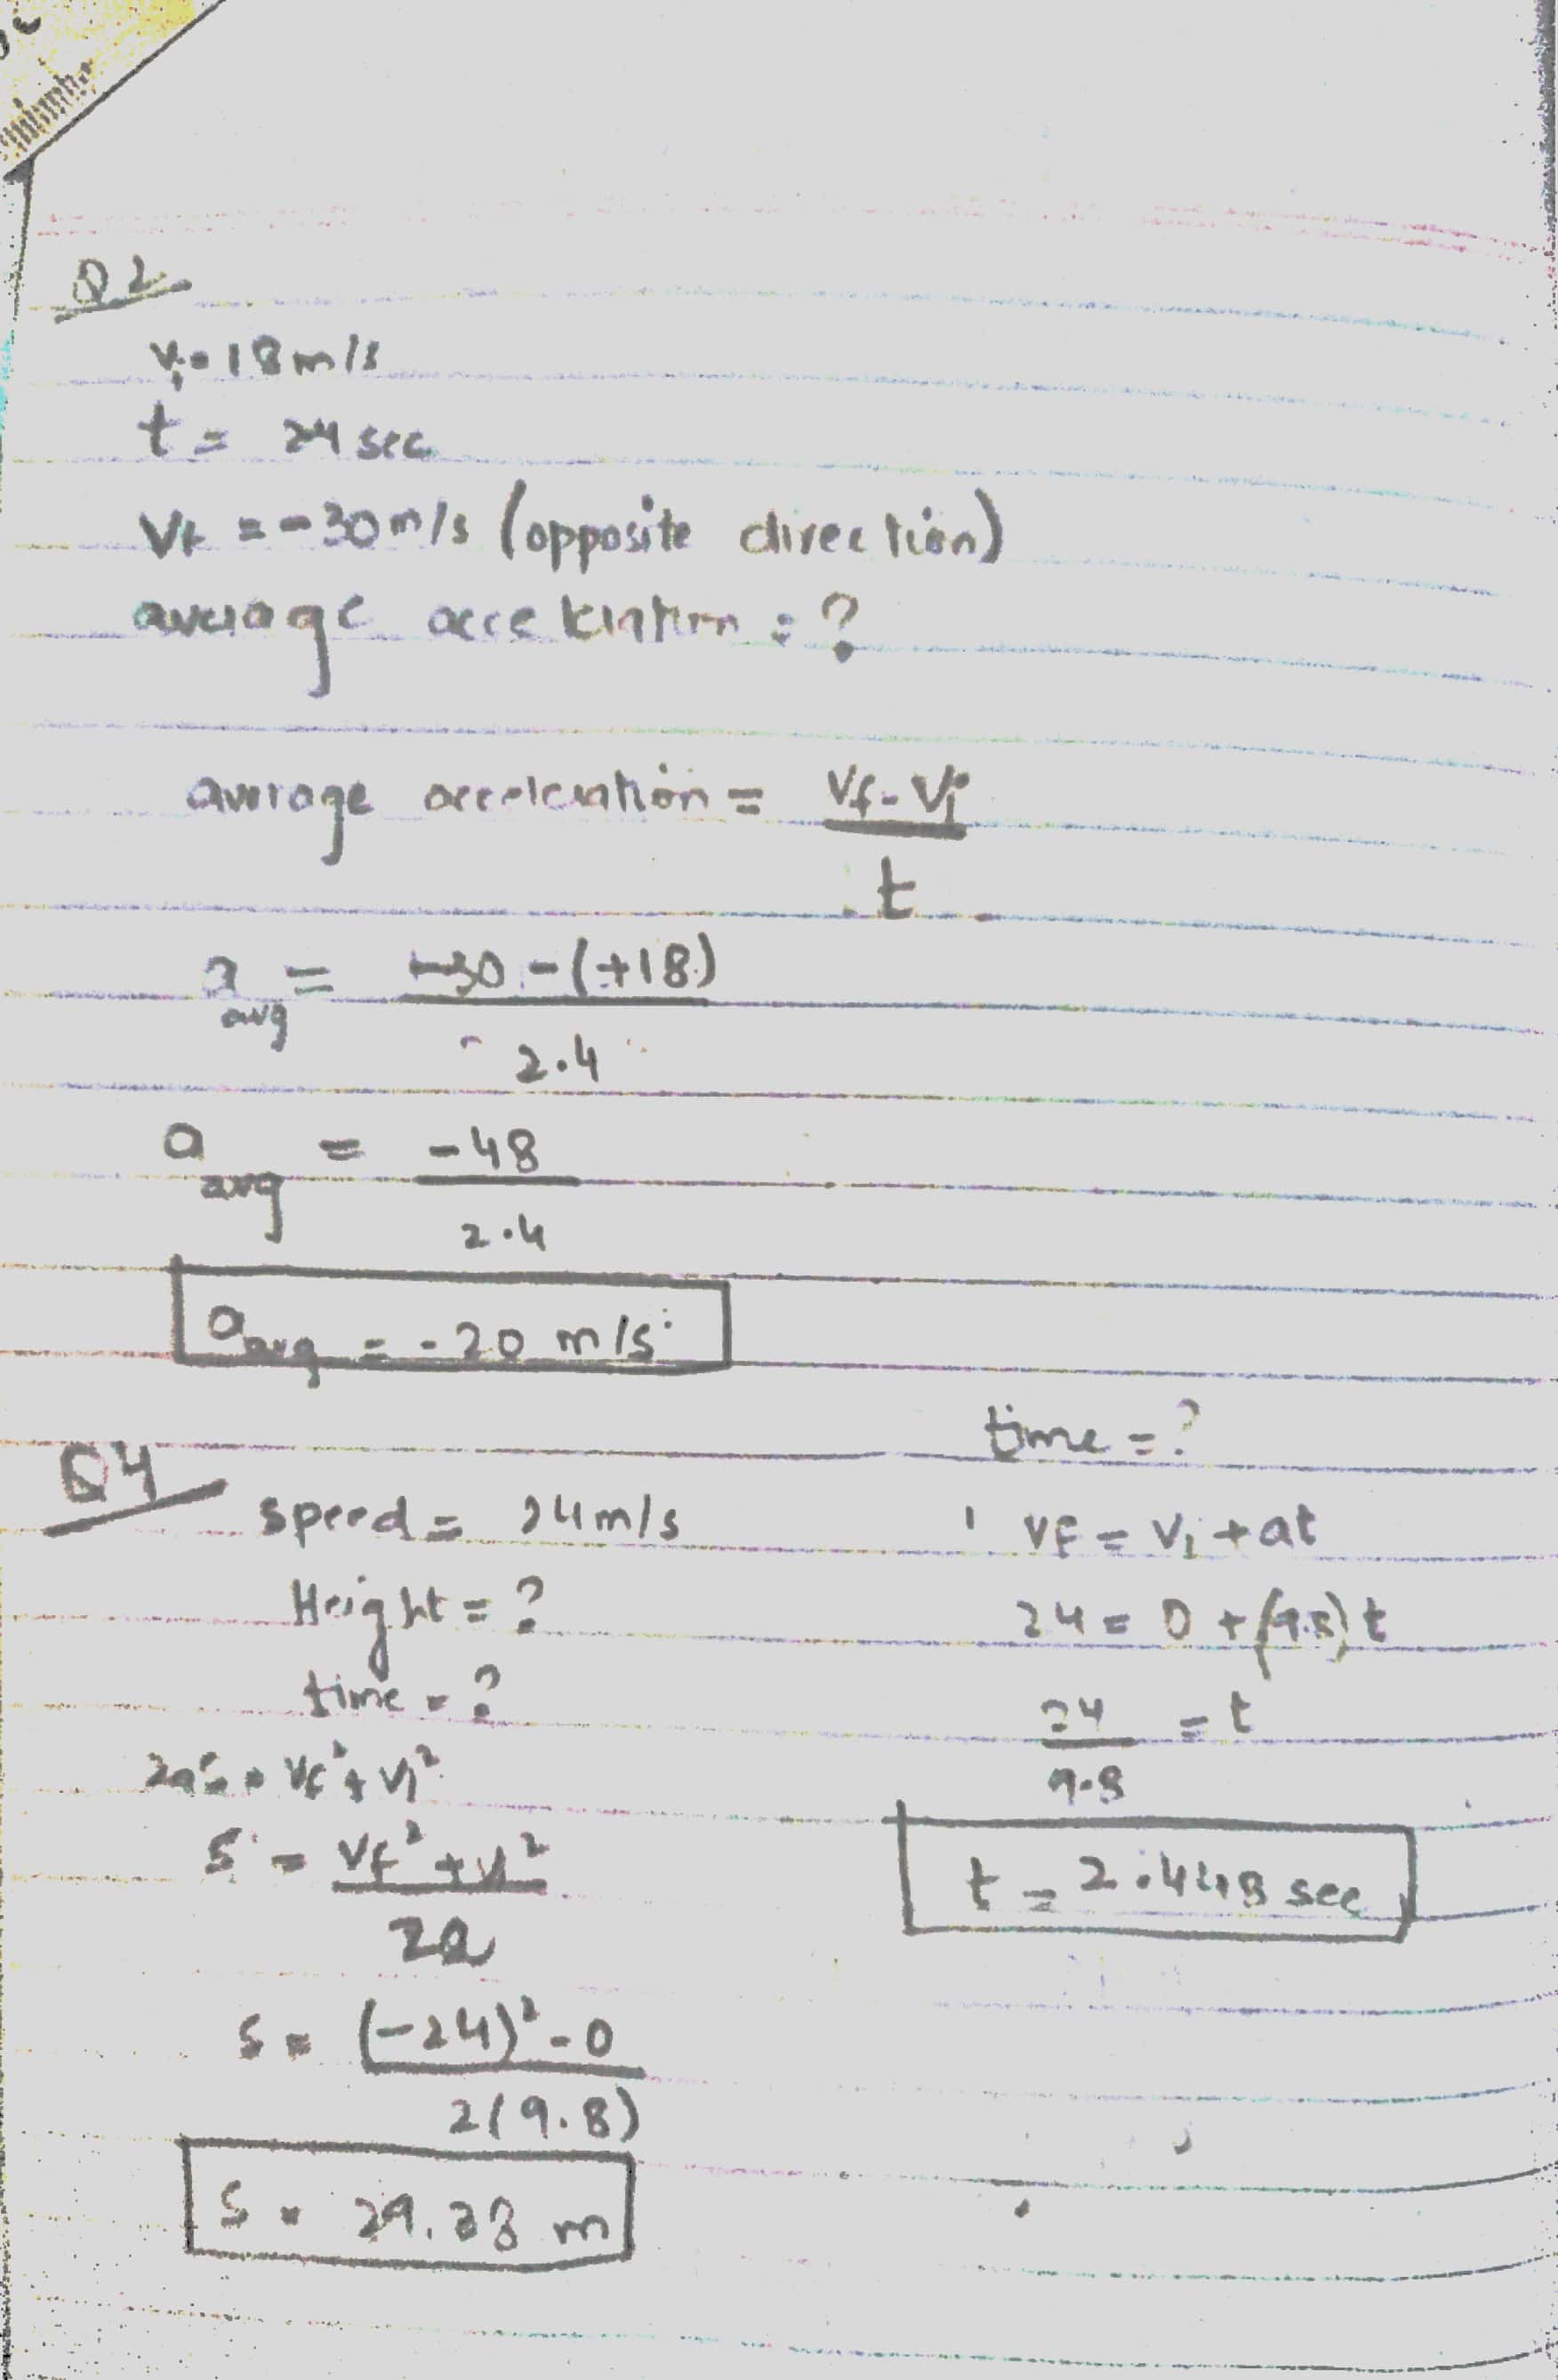 Q2
Vi = 18 m/s
t = 24 sec
Vf = -30 m/s (opposite direction)
average acceleration = ?
average acceleration = Vf - Vi
t
a avg = -30 - (+18)
2.4
a avg = -48
2.4
a avg = -20 m/s²
Q4
speed = 24 m/s
Height = ?
time = ?
2as = Vf² + Vi²
S = Vf² + Vi²
2a
S = (-24)² - 0
2(9.8)
S = 29.38 m
time = ?
vf = vi + at
24 = 0 + (9.8) t
24 = t
9.8
t = 2.448 sec